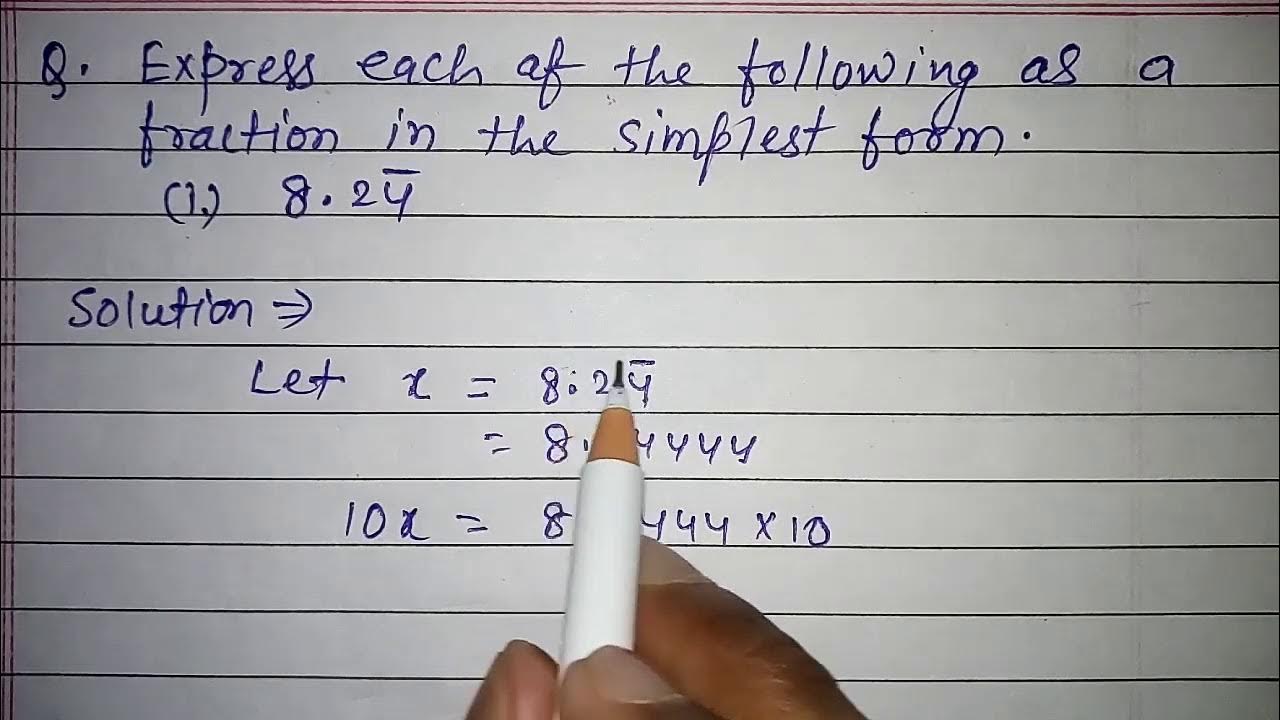 Q. Express each of the following as a
fraction in the simplest form.
(1.) 8.24̅
Solution ⇒
Let x = 8.24̅
= 8. 4444
10x = 8 444 × 10